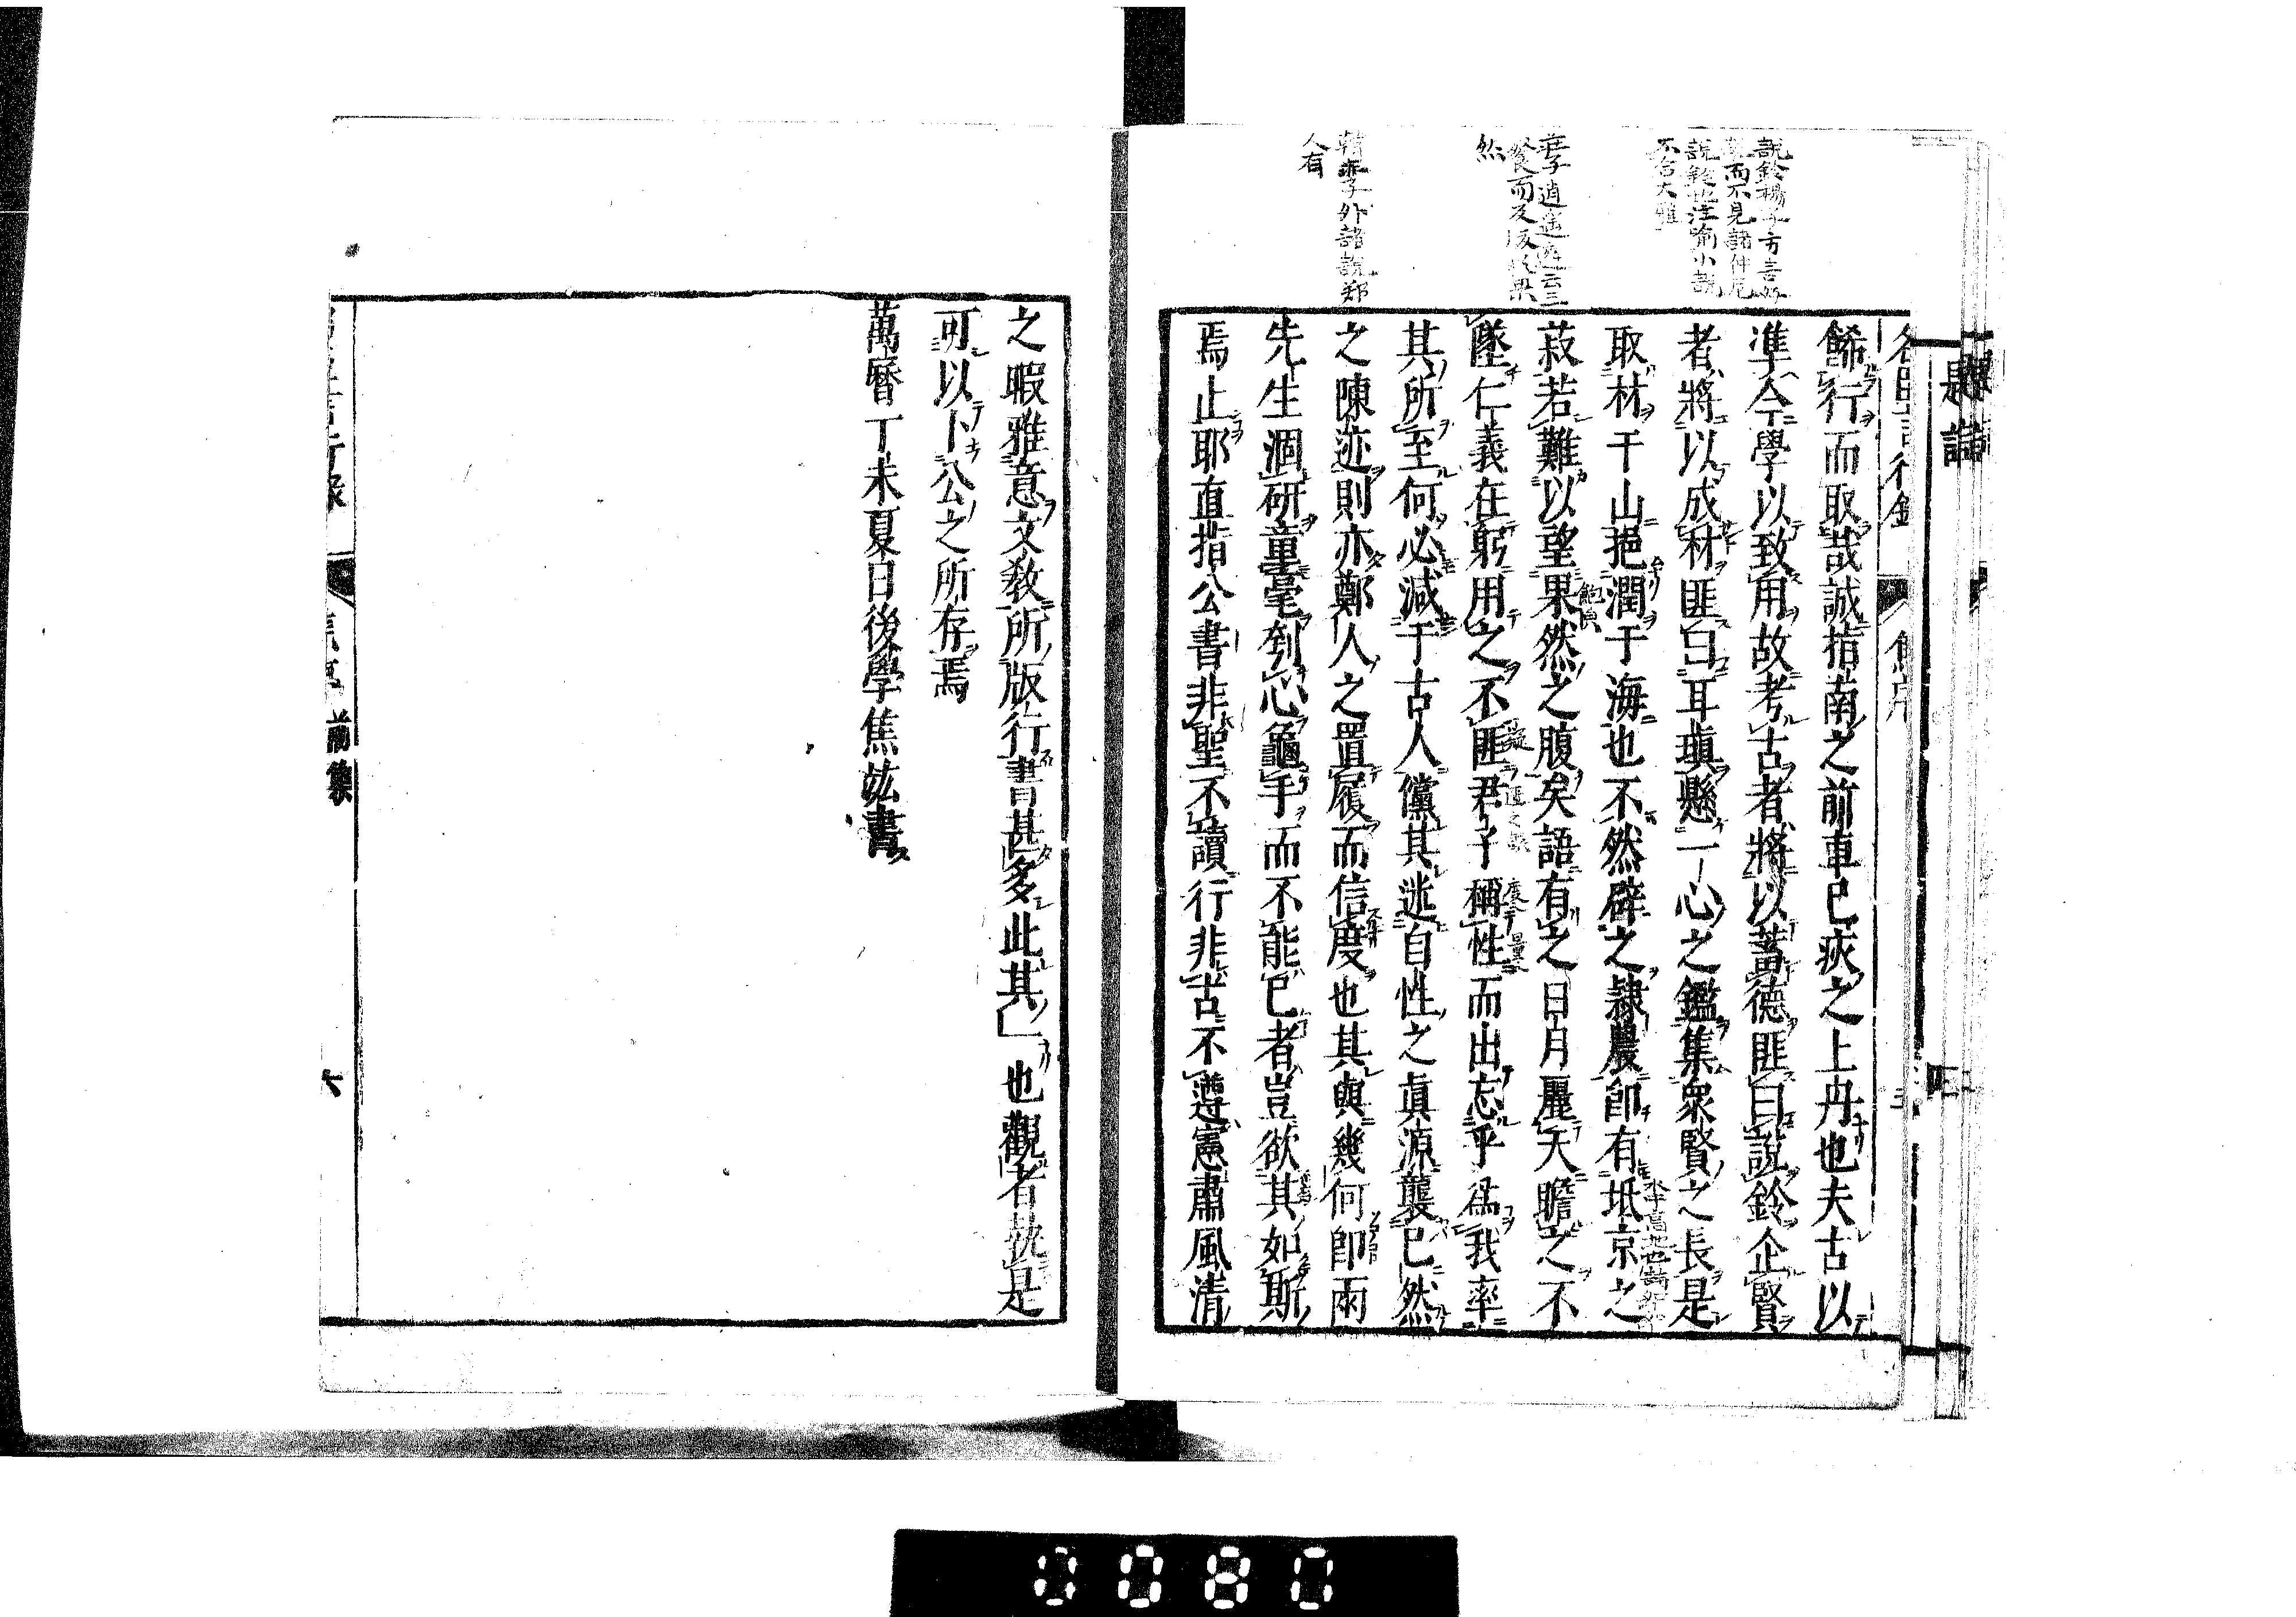 題誌
餙行而取哉誠指南之前車已疾之上丹也夫古以
準今學以致用故考古者將以蓄德匪曰說鈴企賢
者將以成材匪曰耳瑱懸一心之鑑集衆賢之長是
取材于山挹潤于海也不然辟之隷農卽有坻京之
菽若難以望果然之腹矣語有之日月麗天瞻之不
墜仁義在躬用之不匪君子稱性而出忘乎爲我率
其所至何必減于古人儻其迷自性之眞源襲已然
之陳迹則亦鄭人之置履而信度也其與幾何卽雨
先生涸研童毫刳心龜手而不能已者豈欲其如斯
焉止耶直指公書非聖不讀行非古不遵憲肅風淸
之暇雅意文敎所版行書甚多此其一也觀者執是
可以卜公之所存焉
萬曆丁未夏日後學焦竑書
六
說鈴楊子方言好
而不見諸仲尼
說鈴也注喻小說
不合大雅
莊子逍遙遊云三
飡而及反腹果
然
韓非子外諸說鄭
人有
0080